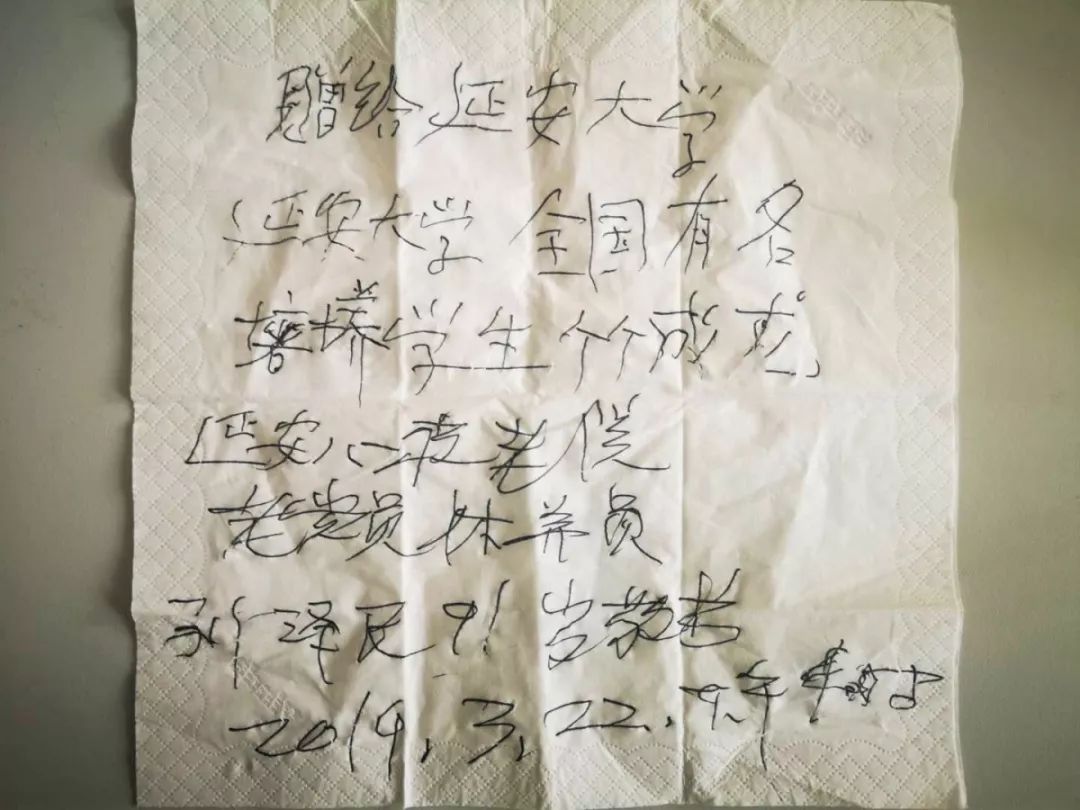 赠给延安大学
延安大学 全国有名
培养学生个个成龙
延安八一敬老院
老党员休养员
孙泽民 91岁
2019.3.22.